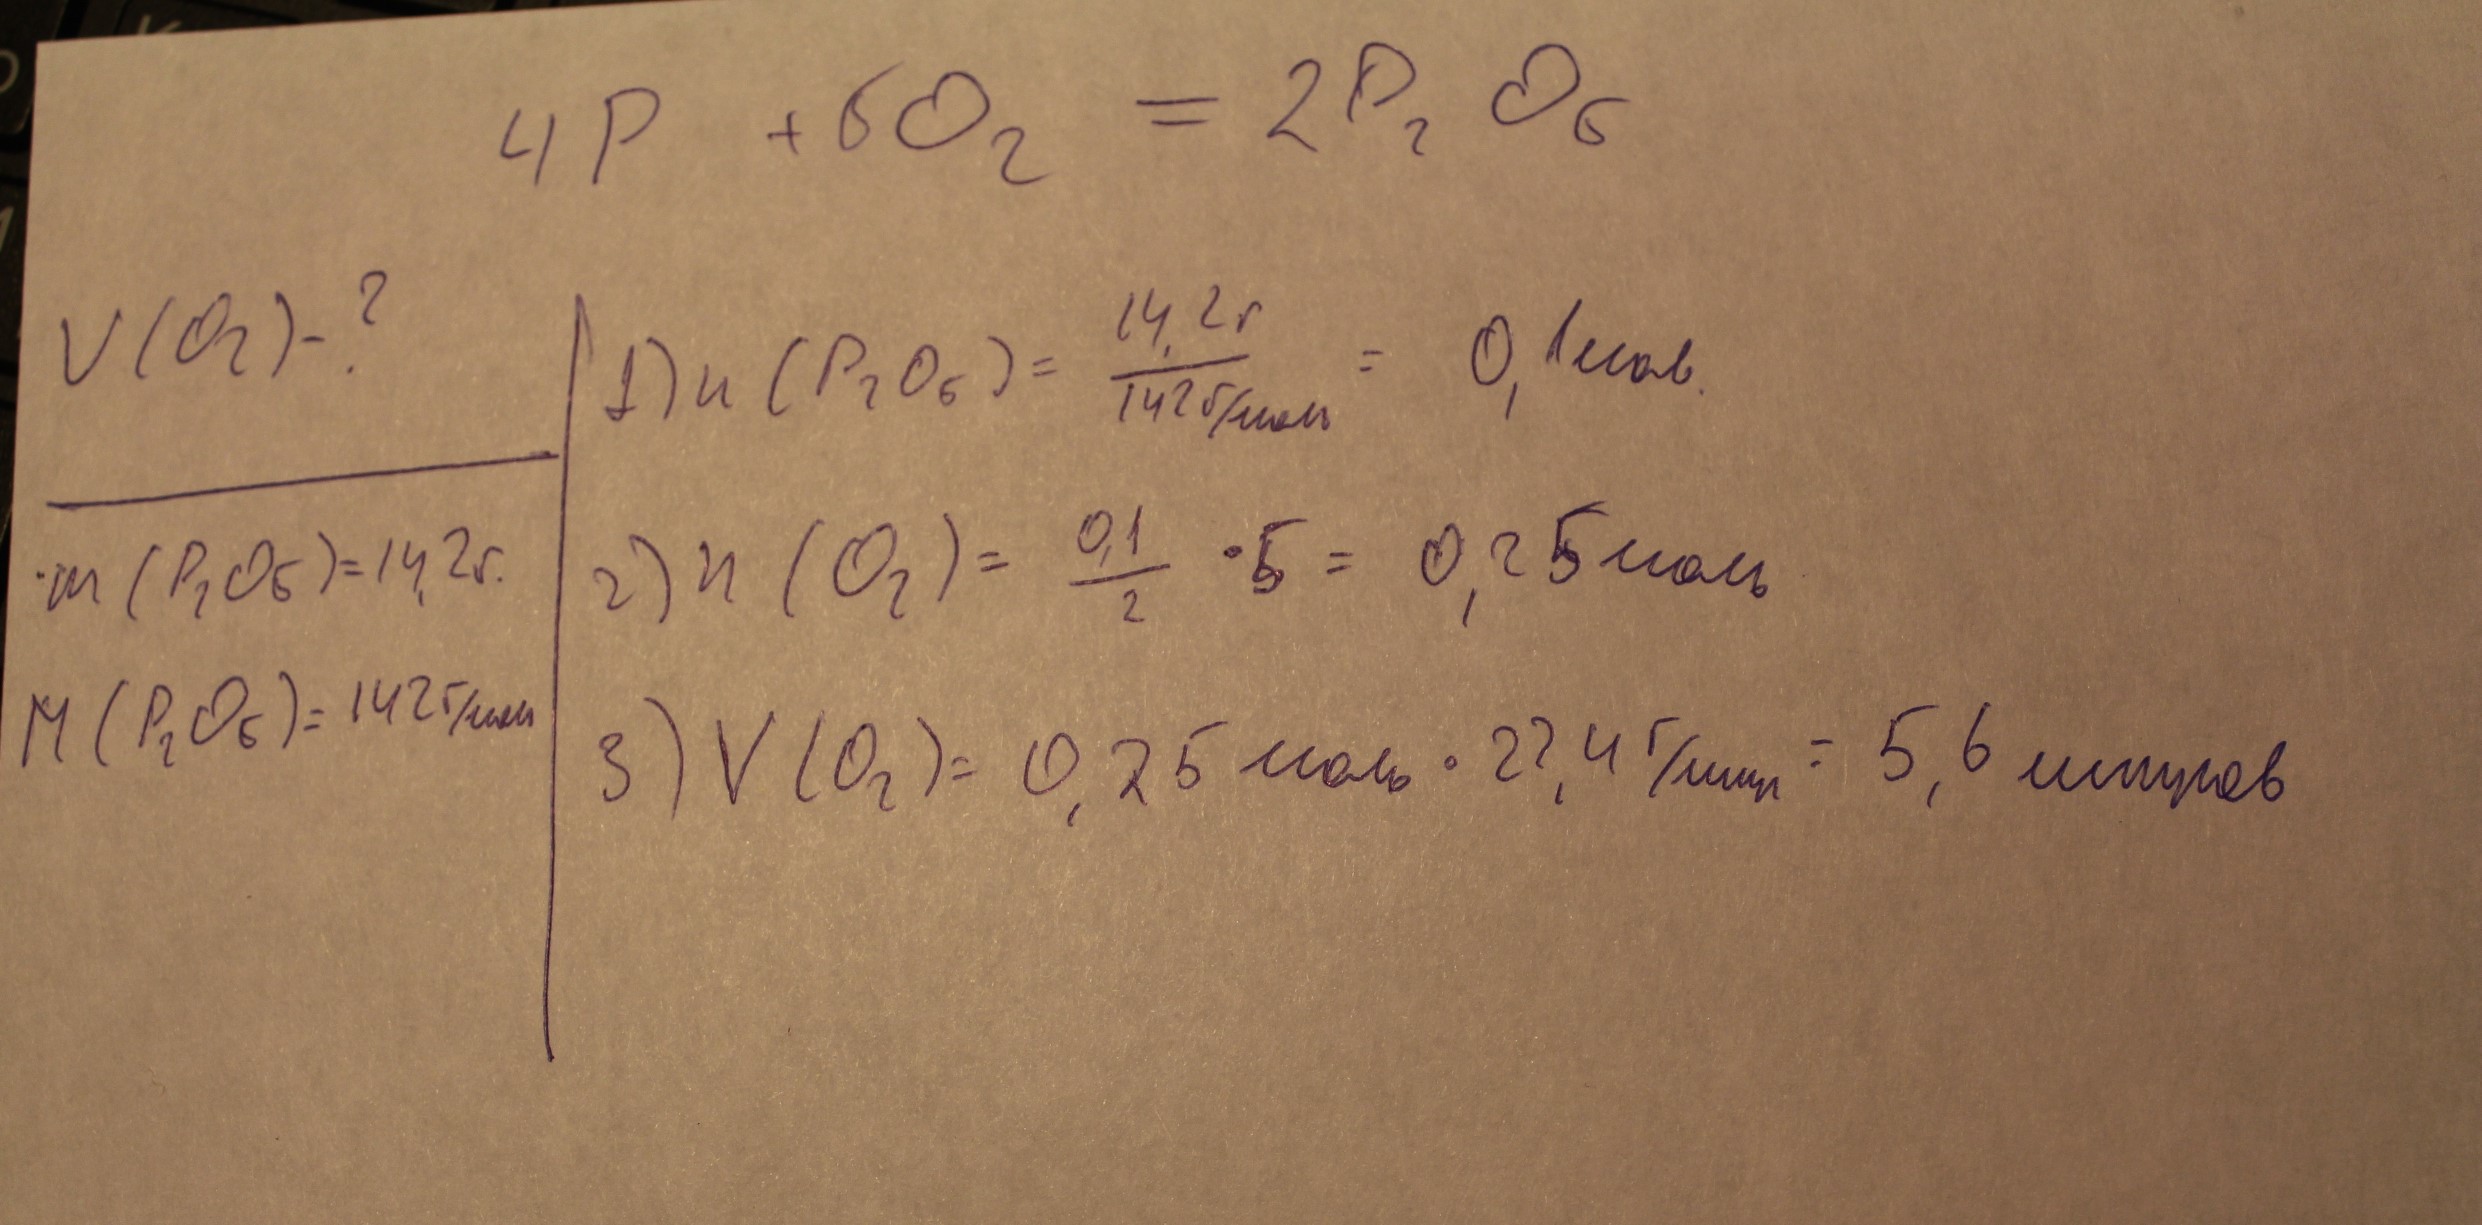 4P + 5O₂ = 2P₂O₅
V(O₂)-?
m(P₂O₅)=14,2г.
M(P₂O₅)=142г/моль
1) n(P₂O₅) = 14,2г / 142г/моль = 0,1 моль.
2) n(O₂) = 0,1 / 2 · 5 = 0,25 моль
3) V(O₂) = 0,25 моль · 22,4 г/моль = 5,6 литров